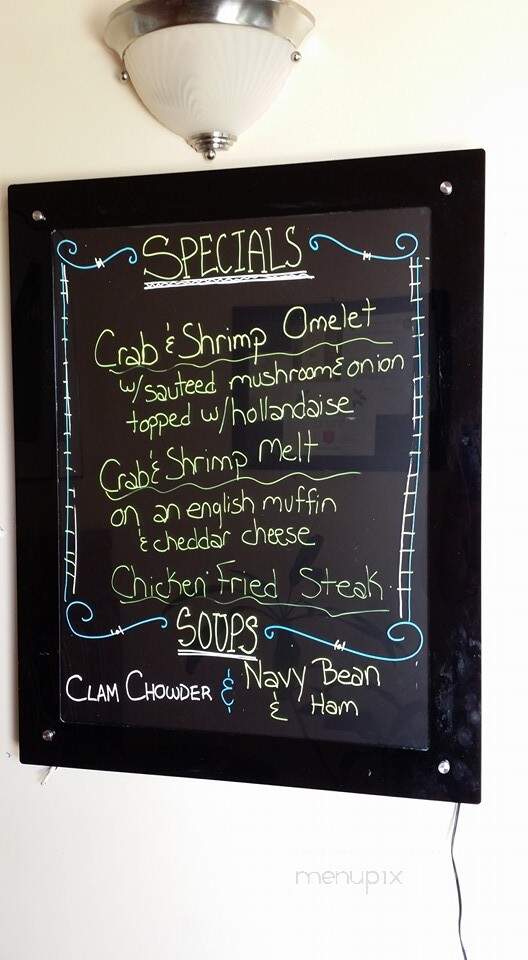 SPECIALS
Crab & Shrimp Omelet
w/ sauteed mushroom & onion
topped w/ hollandaise
Crab & Shrimp Melt
on an english muffin
& cheddar cheese
Chicken Fried Steak
SOUPS
CLAM CHOWDER & Navy Bean
& Ham
menupix